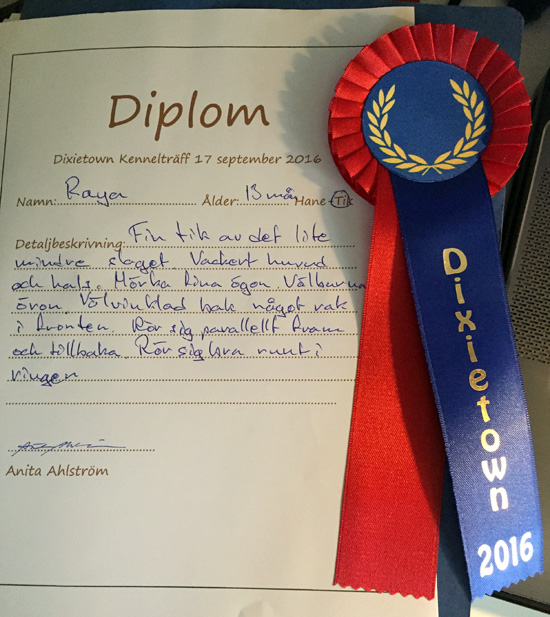 Diplom
Dixietown Kennelträff 17 september 2016
Namn: Raya Ålder: 13 mån Hane Tik
Detaljbeskrivning: Fin tik av det lite
mindre slaget. Vackert huvud
och hals. Mörka fina ögon. Välburna
öron. Välvinklad bak något rak
i fronten. Rör sig parallellt fram
och tillbaka. Rör sig bra runt i
ringen
Anita Ahlström
Dixietown
2016